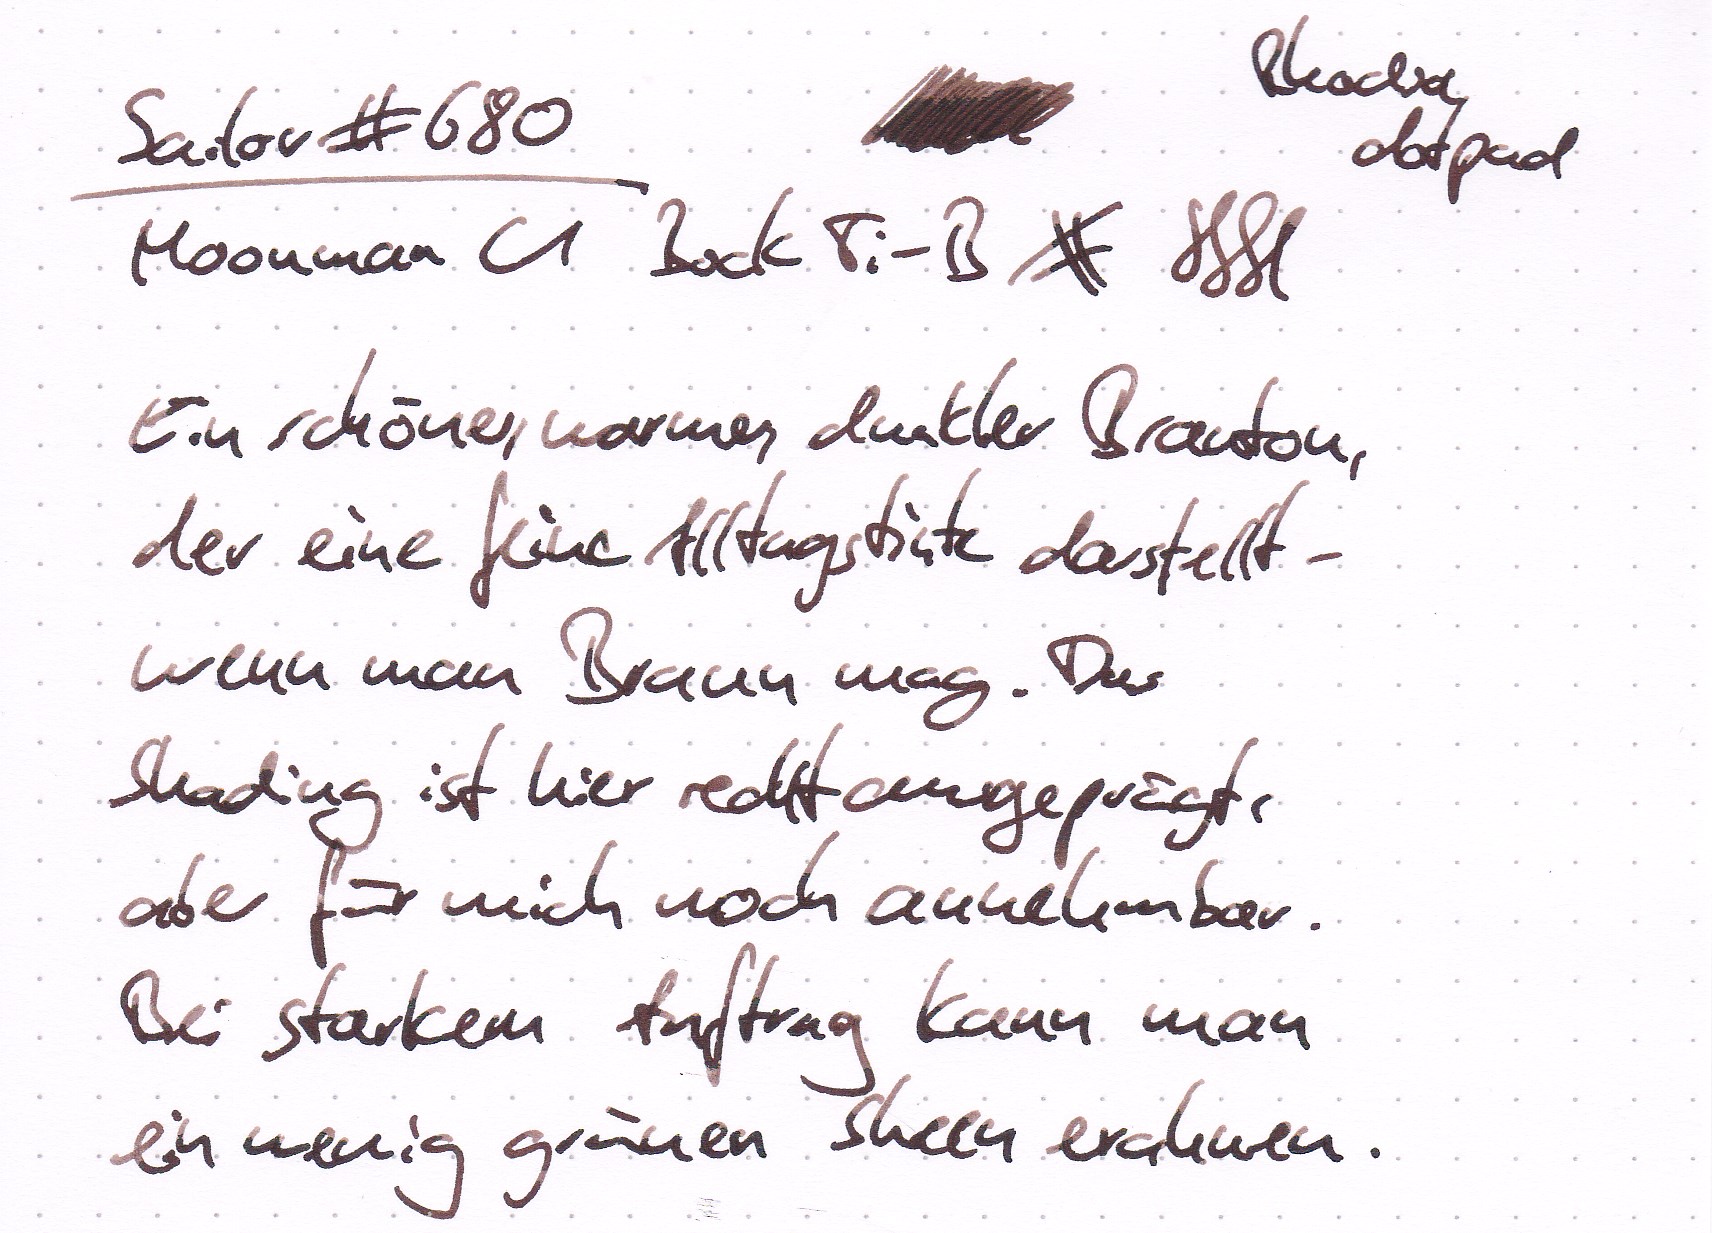 Sailor #680
Rhodia
dotpad
Moonman C1 Bock Ti-B #
Ein schöner, warmer, dunkler Braunton,
der eine feine Alltagstinte darstellt -
wenn man Braun mag. Das
Shading ist hier recht ausgeprägt,
aber für mich noch annehmbar.
Bei starkem Auftrag kann man
ein wenig grünen Sheen erahnen.